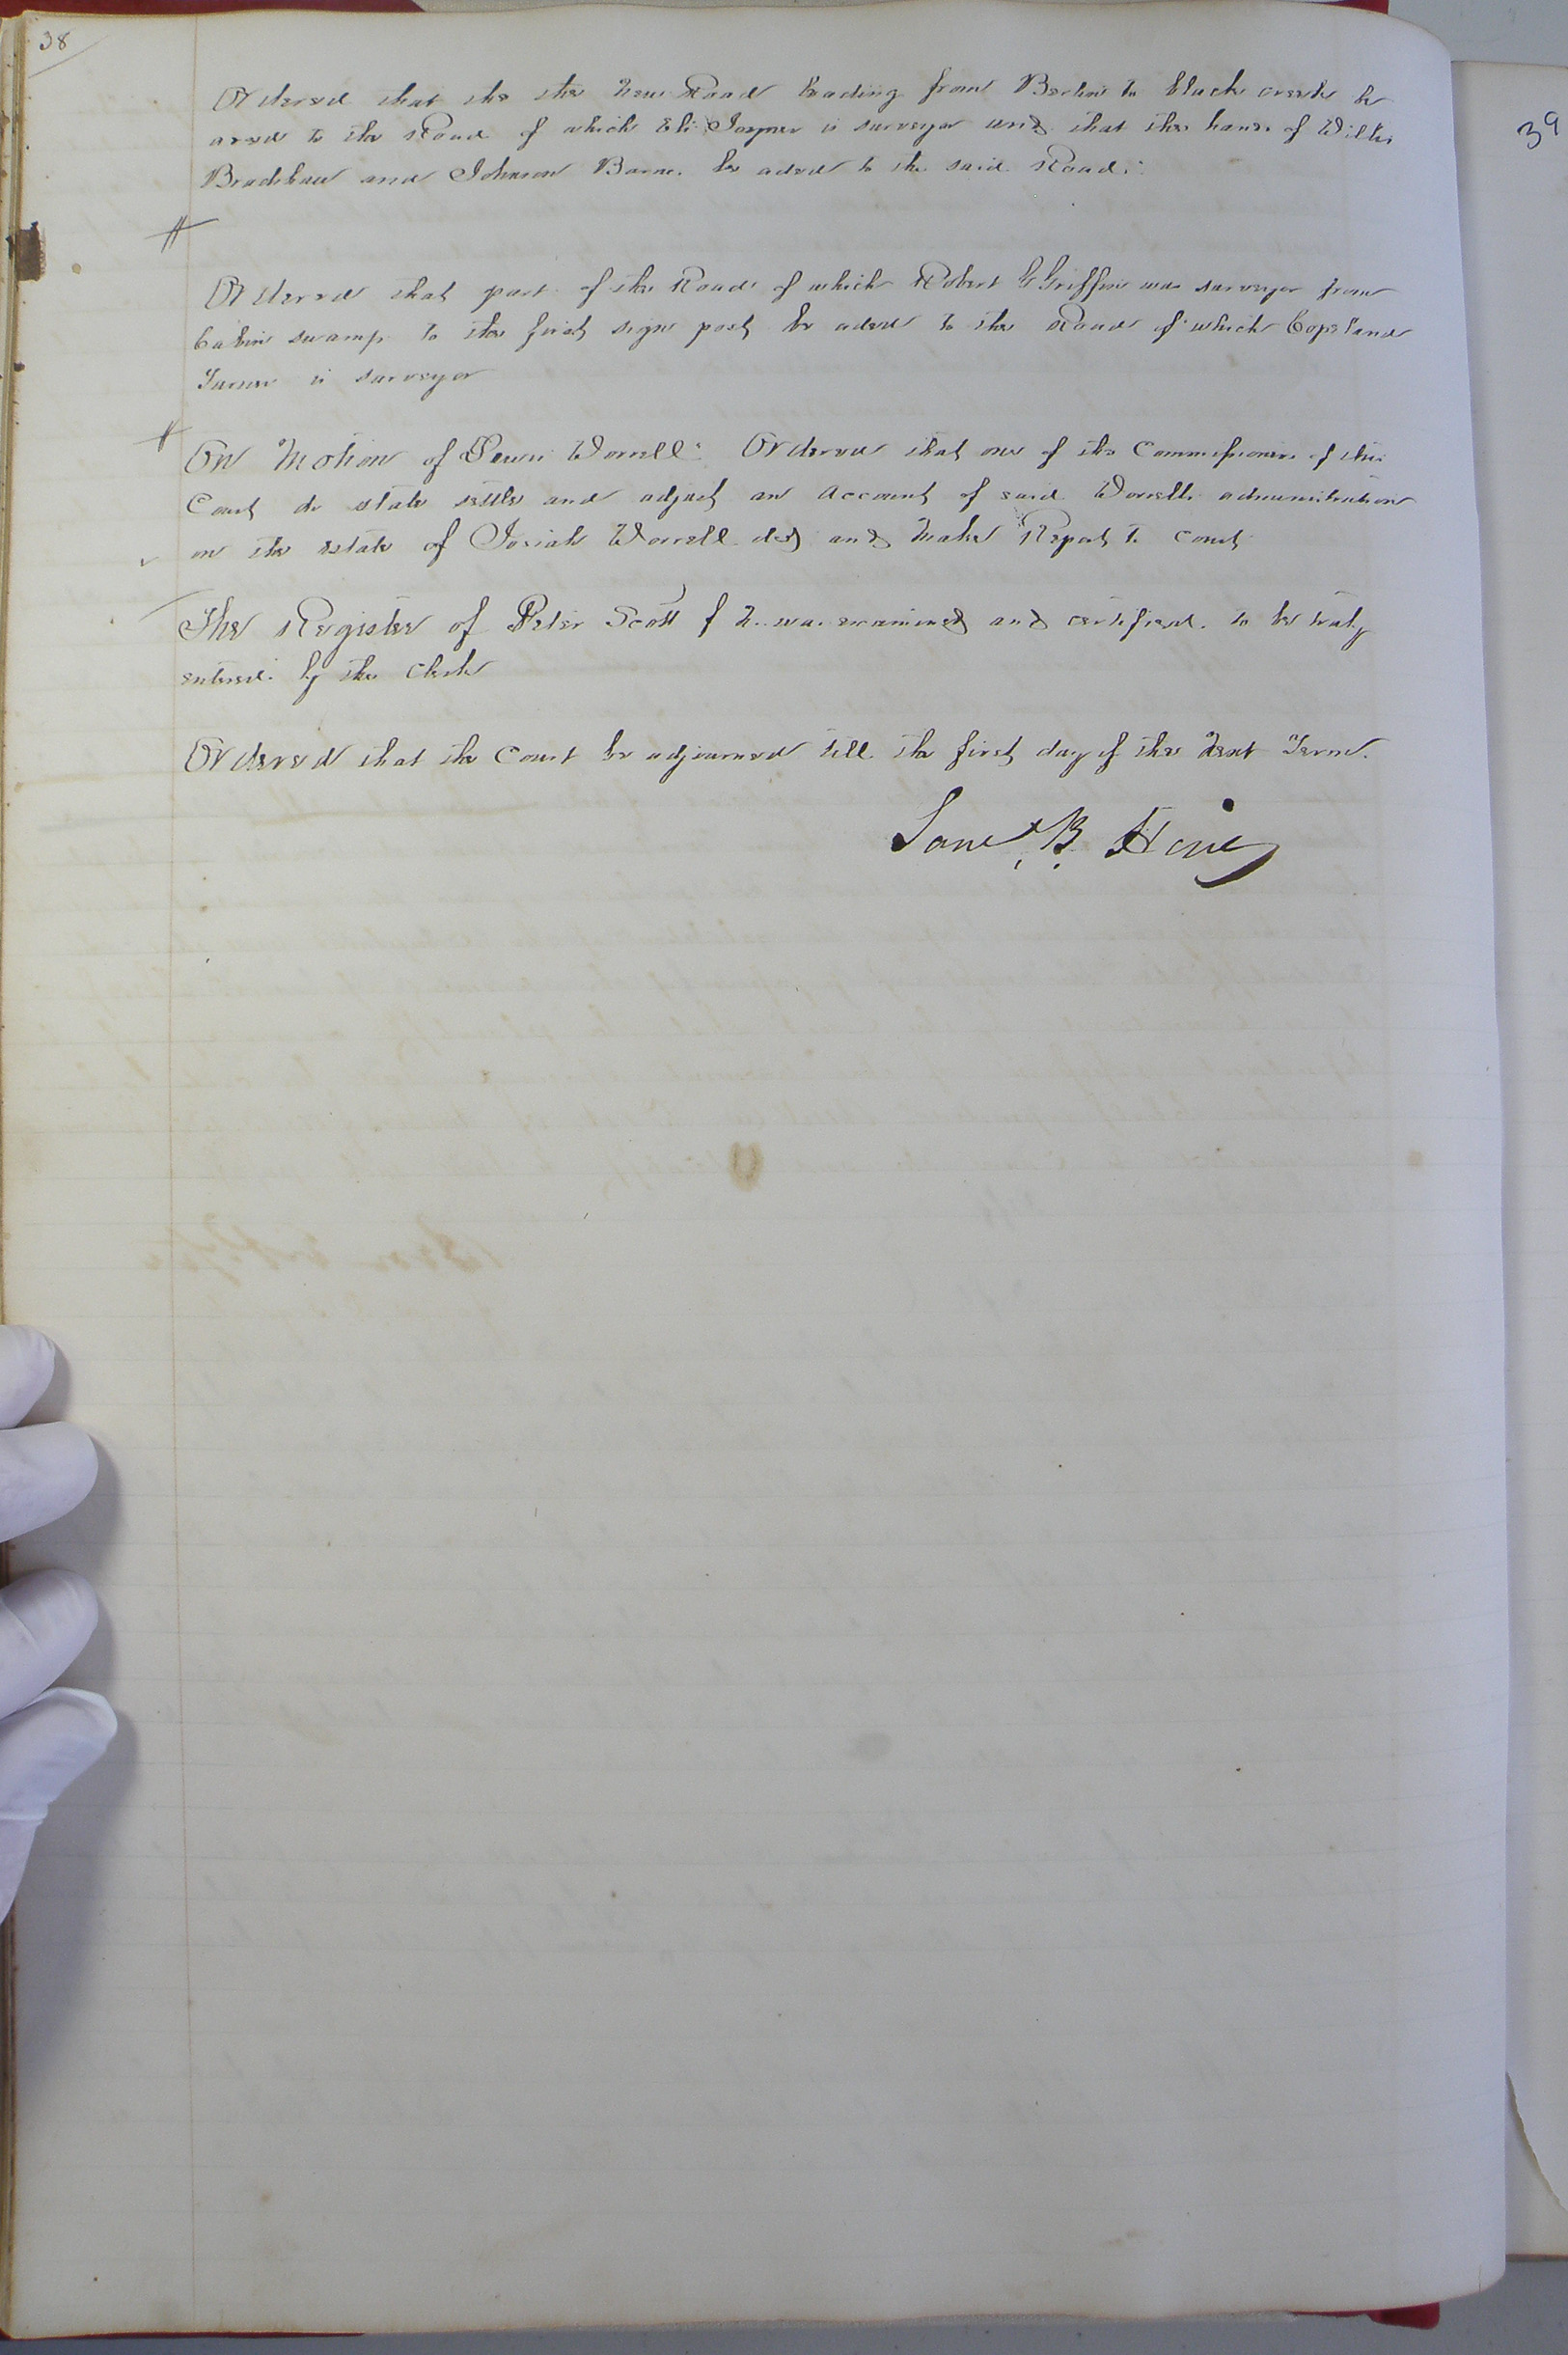 38
Ordered that the the New Road leading from Berlin to black creek be
aded to the Road of which Eli Joyner is surveyor and that the hands of Wilkis
Bradshaw and Johnson Barnes be aded to the said Road.
Ordered that part of the Road of which Robert G Griffin was surveyor from
Cabin swamp to the first sign post be aded to the Road of which Copeland
Turner is surveyor
On Motion of Lewis Worrell Ordered that one of the Commissioners of this
Court do state settle and adjust an Account of said Worrells administration
on the estate of Josiah Worrell decd and Make Report to Court
The Register of Peter Scott f N. was examined and certified to be truly
entered by the Clerk
Ordered that the Court be adjourned till the first day of the Next Term.
Saml B. Hines
39